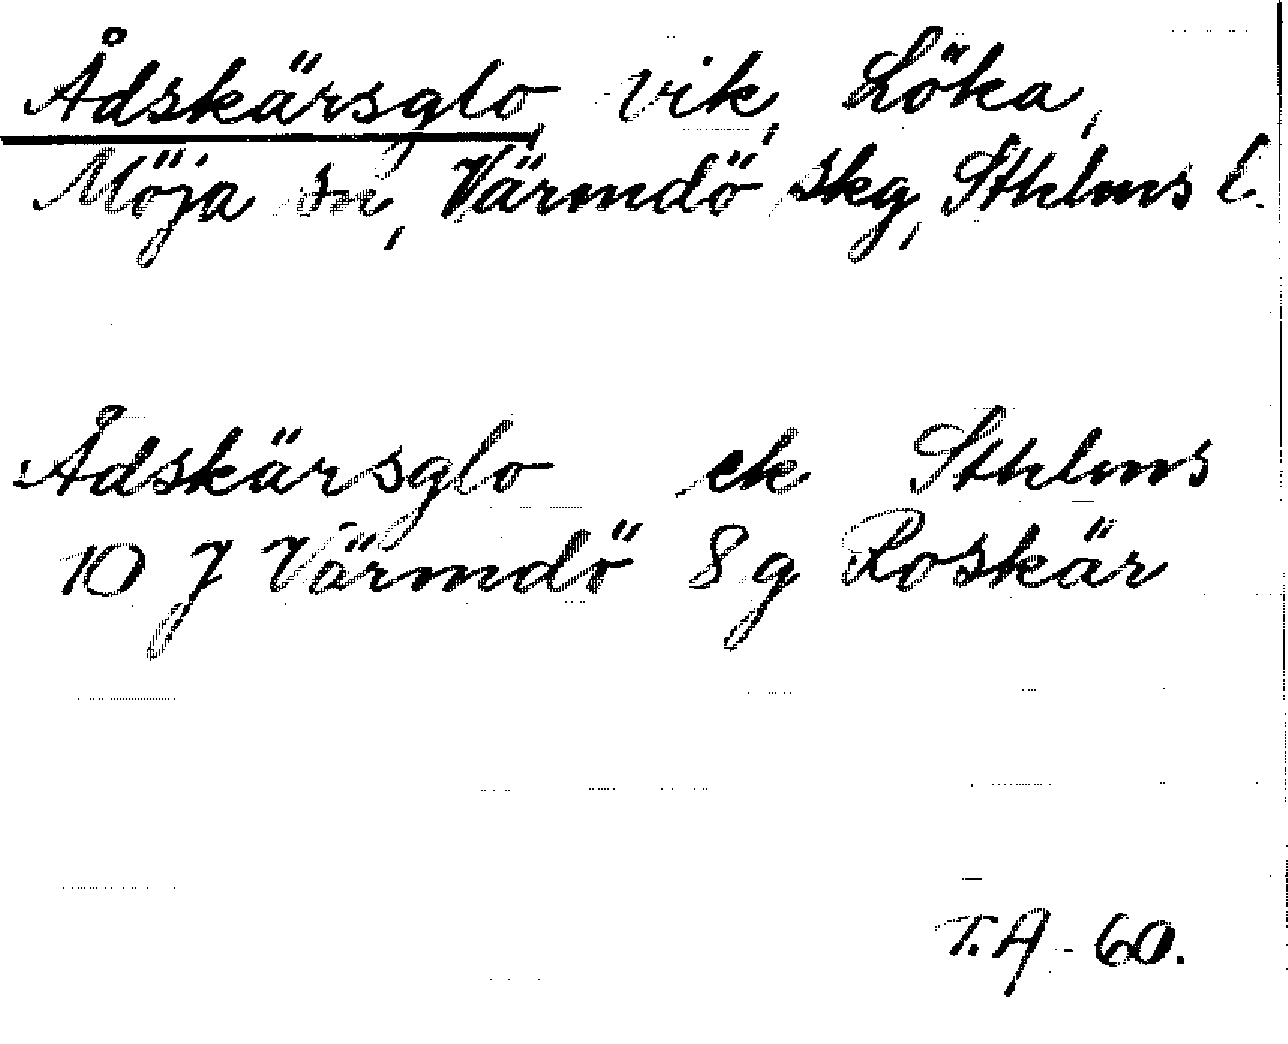 Ådskärsglo, vik, Löka,
Möja sn, Värmdö skg, Sthlms l.
Ådskärsglo ek Sthlms
10 J Värmdö 8 g Roskär
T.A - 60.